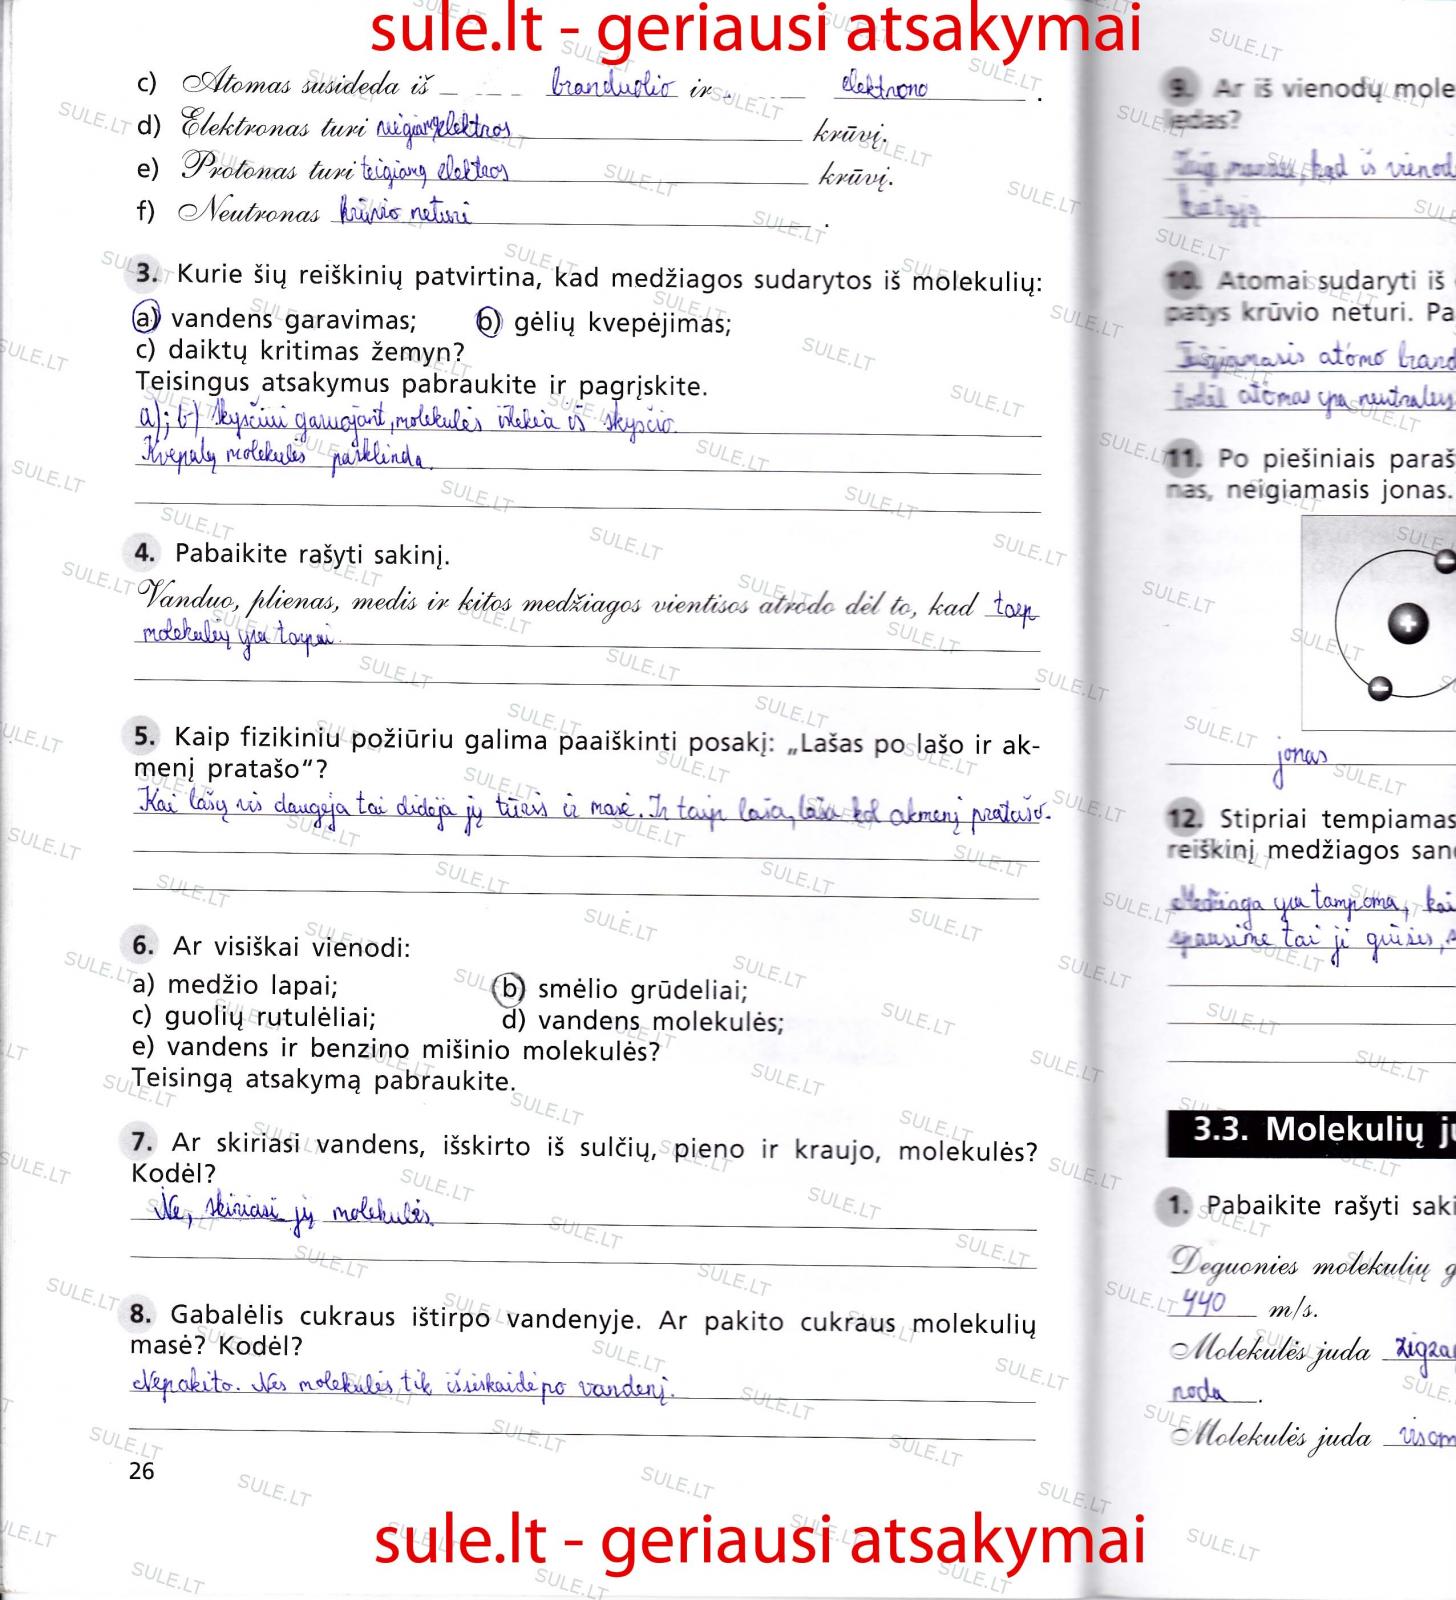 sule.lt - geriausi atsakymai
c) Atomas susideda iš branduolio ir elektrono .
d) Elektronas turi neigiamą elektros krūvį.
e) Protonas turi teigiamą elektros krūvį.
f) Neutronas krūvio neturi .
3. Kurie šių reiškinių patvirtina, kad medžiagos sudarytos iš molekulių:
a) vandens garavimas; b) gėlių kvepėjimas;
c) daiktų kritimas žemyn?
Teisingus atsakymus pabraukite ir pagrįskite.
a); b) Skysčiui garuojant, molekulės išlekia iš skysčio.
Kvepalų molekulės pasklinda.
4. Pabaikite rašyti sakinį.
Vanduo, plienas, medis ir kitos medžiagos vientisos atrodo dėl to, kad tarp
molekulių yra tarpai.
5. Kaip fizikiniu požiūriu galima paaiškinti posakį: „Lašas po lašo ir ak-
menį pratašo“?
Kai lašų vis daugėja tai didėja jų tūris ir masė. Ir taip laša, laša kol akmenį pratašo.
6. Ar visiškai vienodi:
a) medžio lapai; b) smėlio grūdeliai;
c) guolių rutulėliai; d) vandens molekulės;
e) vandens ir benzino mišinio molekulės?
Teisingą atsakymą pabraukite.
7. Ar skiriasi vandens, išskirto iš sulčių, pieno ir kraujo, molekulės?
Kodėl?
Ne, skiriasi jų molekulės.
8. Gabalėlis cukraus ištirpo vandenyje. Ar pakito cukraus molekulių
masė? Kodėl?
Nepakito. Nes molekulės tik išsiskaidė po vandenį.
26
9. Ar iš vienodų mole
ledas?
kad iš vienod
10. Atomai sudaryti iš
patys krūvio neturi. Pa
atomo brand
todėl atomas yra neutralus
11. Po piešiniais paraš
nas, neigiamasis jonas.
+
-
-
jonas
12. Stipriai tempiamas
reiškinį medžiagos san
Medžiaga yra tampoma, kai
spausime tai ji
3.3. Molekulių j
1. Pabaikite rašyti saki
Deguonies molekulių g
440 m/s.
Molekulės juda zigza
Molekulės juda visom
sule.lt - geriausi atsakymai
SULE.LT